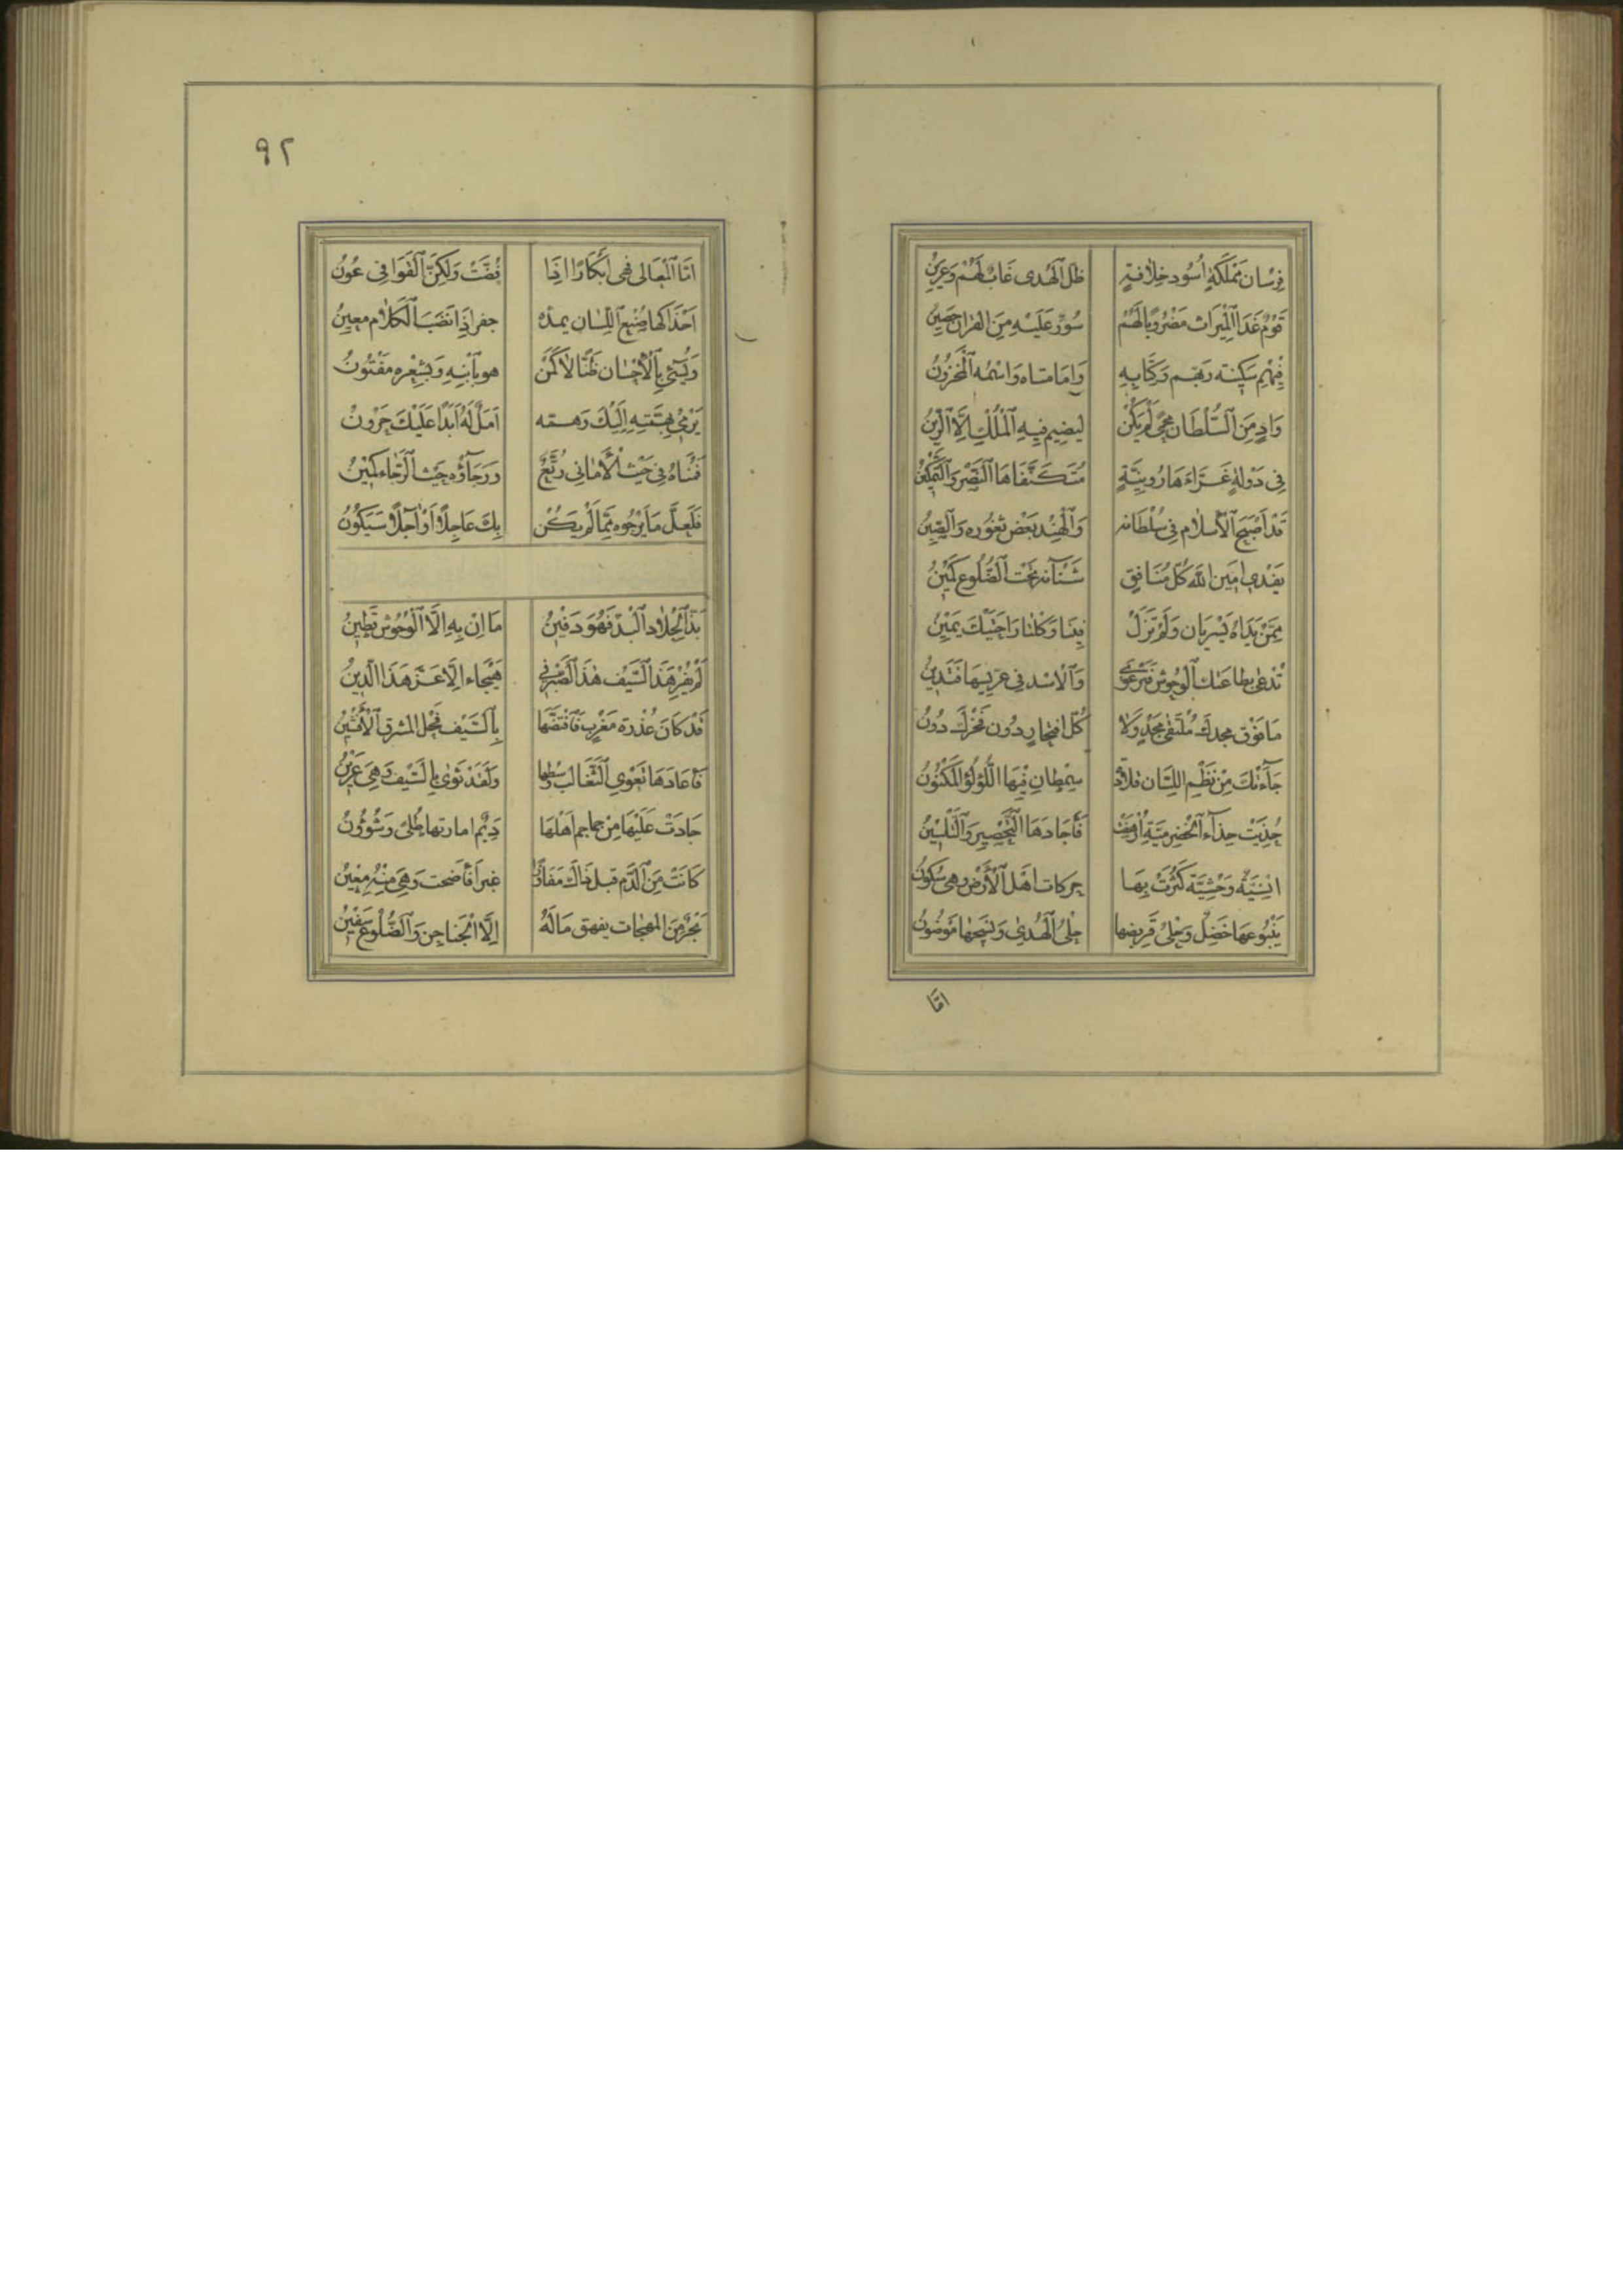 فِرْسَان مَمْلَكَةٍ اُسُود خِلَافَةٍ ظل الْهُدى غَابٌ لَهُمْ وَعَرِينُ
قَوْمٌ غَدَا الْمِيْرَاث مَضْرُوبًا لَهُمْ سُوْرٌ عَلَيْهِ مِنَ القران حَصِين
فِيْهِمْ سَكِينَة رَبهم وَكِتَابِهِ وَامَامتاه وَاسْمُه الْمَخْزُونُ
وَادٍ مِنَ السُّلْطَان مَحمىً لَمْ يَكُنْ ليضيم فِيهِ الْمُلْكَ اِلَّا الدِّينُ
فِى دَوْلَةٍ غَرَّاءَ هَارُونِيَّةٍ مُتَكَنِّفَاهَا النَّصْر وَالتَّمْكِينُ
قَدْ أَصْبَحَ الْأسلَام فِى سُلْطَانه وَالْهِنْد بَعْض ثغُوُره وَالصِّينُ
يفدى امين الله كُلّ مُنَافِقٍ شَنْآنه تَحْت الضُّلُوع كَمِينُ
مِمَّنْ يَدَاهُ يُسْريَان وَلَمْ تَزَلْ فِينَا وَكلتا رَاحَتَيْكَ يَمِيْن
تُدْعَى بطَاعتك الْوُحُوش فَتَرْعَوِي وَالْاسْد فِى عرِّيسِهَا فَتَدِينُ
مَا فَوْق مجدكَ مُلْتَقَى مَجْدٍ وَلَا كُلّ افتِخَار دُون فَخْرِكَ دُونُ
جَآءَتْكَ مِنْ نَظْمِ اللِّسَان قلَادَة سِمْطانِ فِيْهَا اللُّؤلُؤ الْمَكْنُوُن
حُذِيَتْ حِذَآء الْحَضْرَمِيَّةِ اُرْهِفَتْ فَأَجَادَهَا التَّخْصِير وَالتَّلْسِيْنُ
انْسِيَّةٌ وَحْشِيَّةٌ كَثُرَتْ بِهَا حركات اهْل الْأَرْض وَهى سُكُونُ
يَنْبُوعهَا خَضِلٌ وَحَلْىُ قَرِيضها حَلْىُ الْهُدِىِّ وَنَسْجُها مَوْضُونُ
امّا
٩٢
امَّا الْمَعَالِى فهى ابْكَارًا اذَا نُضَّتْ وَلكِنَّ الْقَوَافِى عُونُ
اَحْذَاكهَا صَنَع اللِّسَان يمدّه جفر اِذَا نَضَبَ الْكَلَام معينُ
وَيُسِيْئ بِالْأحْسَان ظَنًّا لَا كَمَنْ هو بابْنِهِ وَبِشِعْره مَفْتُونُ
يَرْمى بِهِمَّتِهِ اِلَيْكَ وَهمّه اَمَلٌ لَهُ اَبَدًا عَلَيْكَ حَرُونُ
فَمُنَاهُ فِى حَيْث الْأمَانِى رُتَّعٌ وَرَجَاؤُه حَيْث الرَّجَاء كَمِيْنُ
فَلَعَلَّ مَا يَرْجُوه مِمَّا لَمْ يَكُنْ بِكَ عَاجِلًا اَوْ اٰجِلًا سَيَكُوْنُ
بَذَّ الْجِلَاد الْبَذّ فَهْوَ دَفِيْنُ مَا اِنْ بِهِ اِلَّا الْوُحُوش قَطِينُ
لَمْ يُقْر هَذَا السَّيْف هٰذَا الصَّبْر فِى هَيْجَاء اِلَّا عَزَّ هَذَا الدِّينُ
قَدْ كَانَ عُذْرَة مَغْرِبٍ فَافْتَضَّهَا بِالسَّيْف فَحْل المشرق الْأَفْشِيْنُ
فَأعَادَهَا تَعْوِي الثَّعَالب وَسْطها وَلَقَد ثوَى بِالسَّيْف وَهِىَ عَرِيْنُ
جَادَتْ عَلَيْهَا مِنْ جماجم اَهْلهَا دِيَمٌ امارتها طُلىً وَشُؤُونُ
كَانَتْ مِنَ الدَّم قبل ذَاكَ مَفَازَةً غبرا فَأضحت وَهِىَ مِنْهُ مَعِيْنُ
بَحْرٌ مِنَ المهجات يفهق مَا لَهُ اِلَّا الْجَناجِن وَالضُّلُوعَ سَفِيْنُ